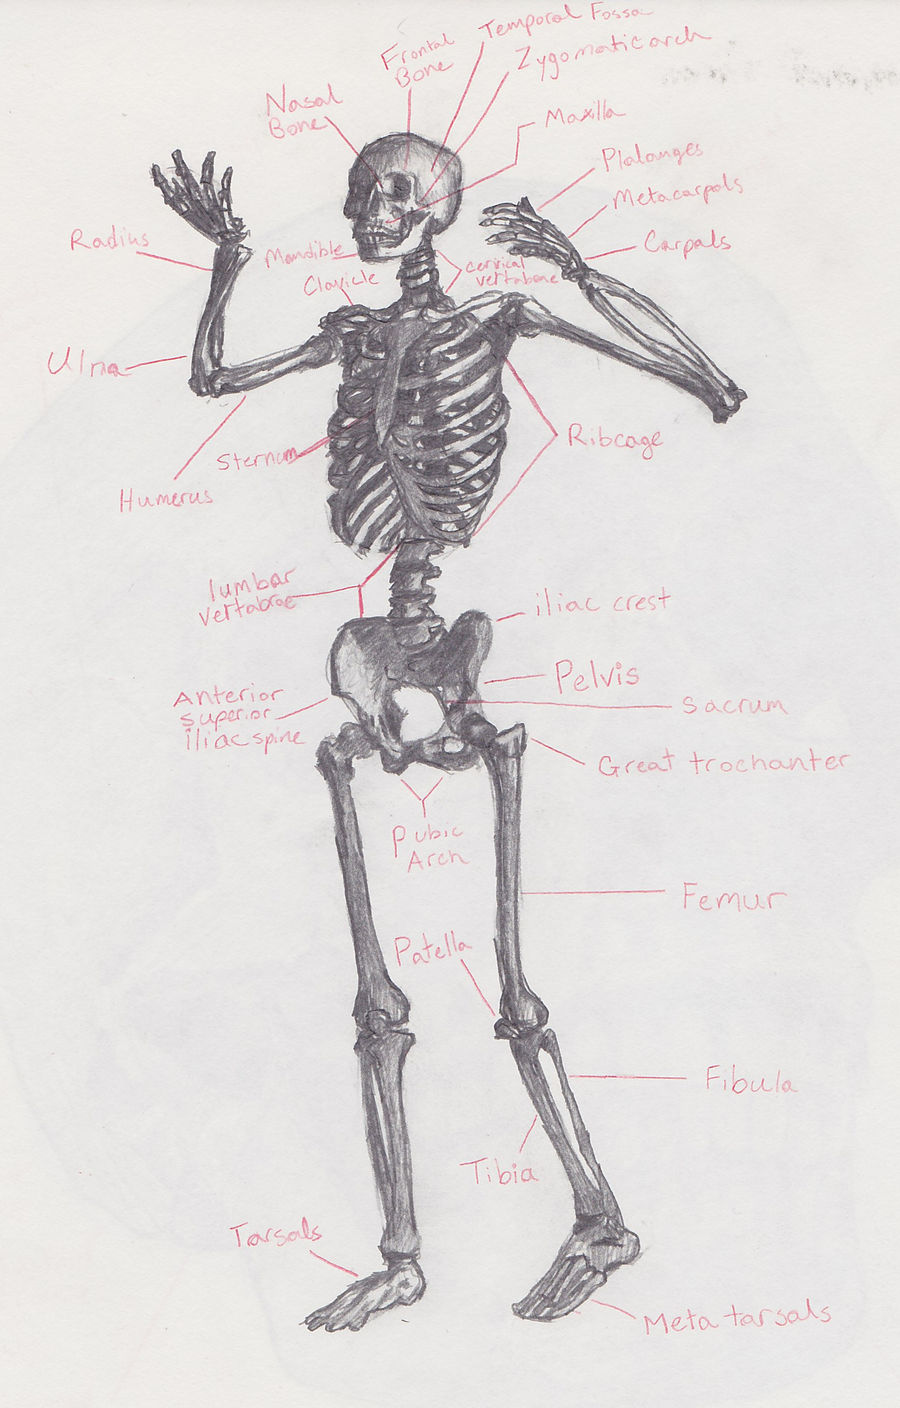 Temporal Fossa
Frontal
Bone
Zygomatic arch
Nasal
Bone
Maxilla
Plalanges
Metacarpals
Radius
Carpals
Mandible
Clavicle
cervical
vertabrae
Ulna
Ribcage
Sternum
Humerus
lumbar
vertabrae
iliac crest
Pelvis
Anterior
superior
iliac spine
Sacrum
Great trochanter
Pubic
Arch
Femur
Patella
Fibula
Tibia
Tarsals
Meta tarsals